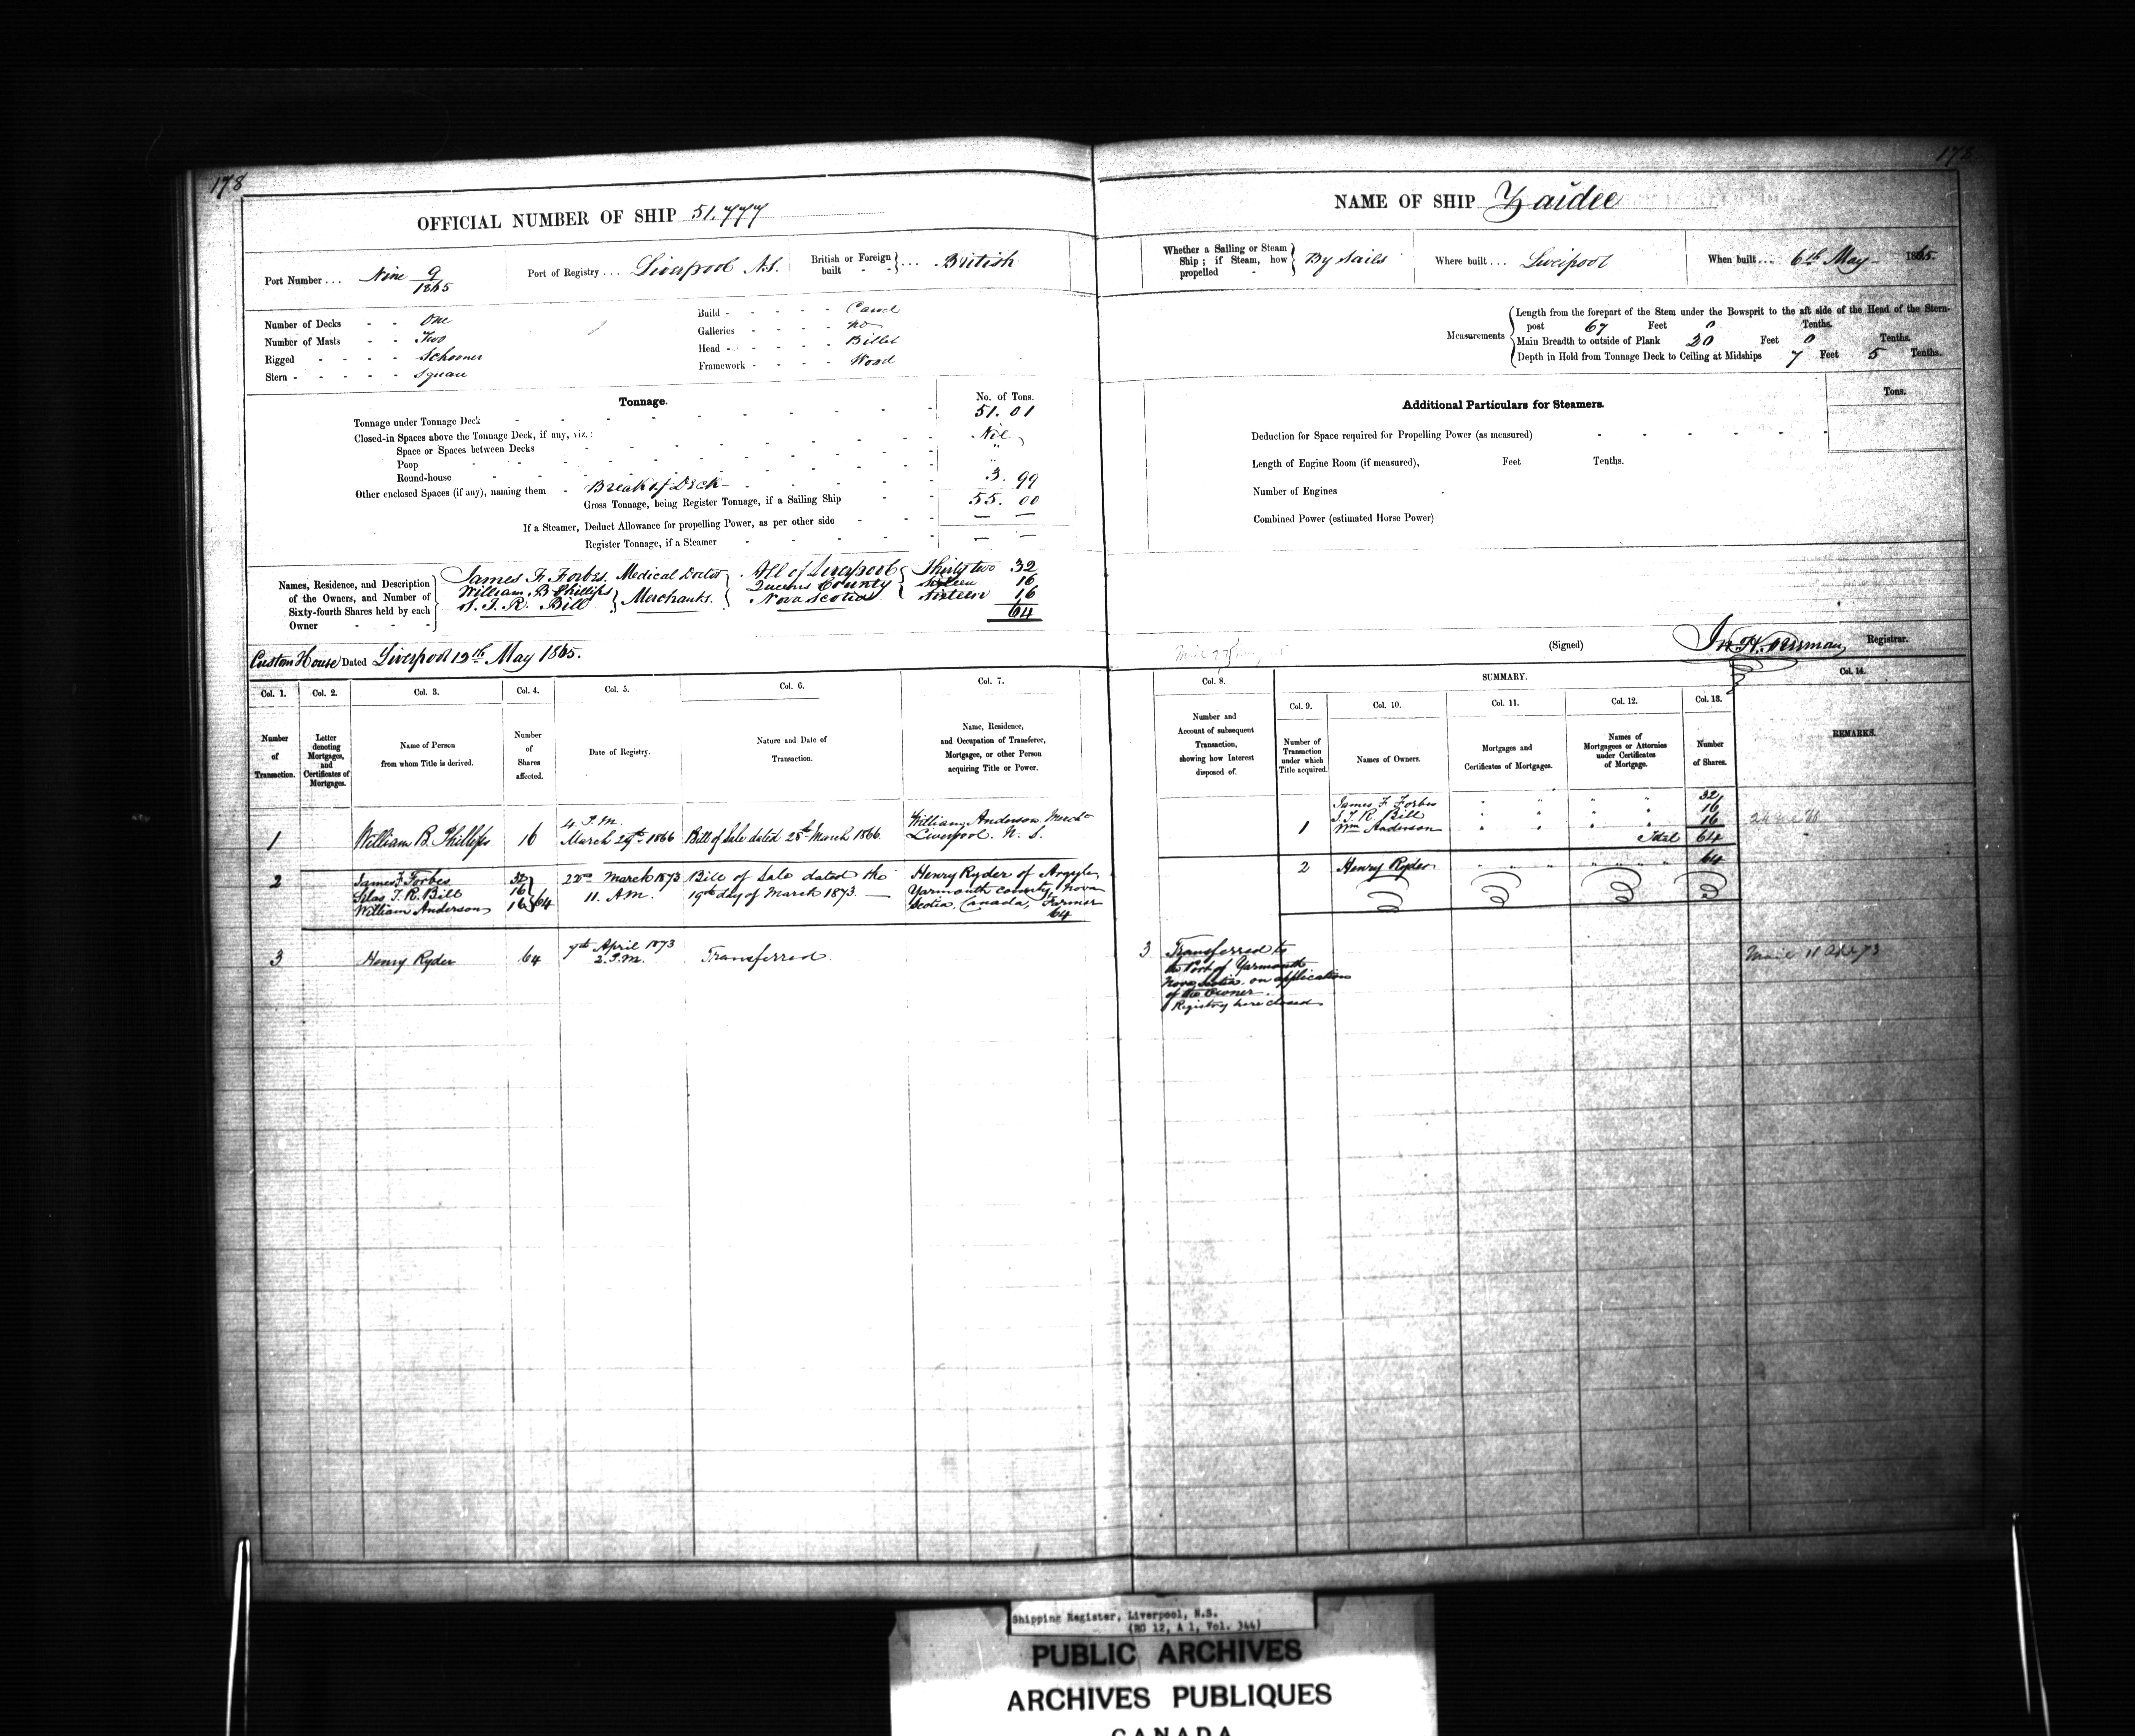 178
178
OFFICIAL NUMBER OF SHIP 51,777
NAME OF SHIP Zaidee
Port Number ... Nine 9/1865
Port of Registry ... Liverpool N.S.
British or Foreign built - - } ... British
Whether a Sailing or Steam Ship; if Steam, how propelled - } By Sails
Where built ... Liverpool
When built ... 6th May 1865.
Number of Decks - - One
Number of Masts - - Two
Rigged - - - - Schooner
Stern - - - - - Square
Build - - - - - Carvel
Galleries - - - - no
Head - - - - - Billet
Framework - - - - Wood
Measurements
Length from the forepart of the Stem under the Bowsprit to the aft side of the Head of the Stern-
post 67 Feet 0 Tenths.
Main Breadth to outside of Plank 20 Feet 0 Tenths.
Depth in Hold from Tonnage Deck to Ceiling at Midships 7 Feet 5 Tenths.
Tonnage.
No. of Tons.
Tonnage under Tonnage Deck 51.01
Closed-in Spaces above the Tonnage Deck, if any, viz.:
Space or Spaces between Decks Nil
Poop "
Round-house "
Other enclosed Spaces (if any), naming them - Break of Deck 3.99
Gross Tonnage, being Register Tonnage, if a Sailing Ship 55.00
If a Steamer, Deduct Allowance for propelling Power, as per other side — —
Register Tonnage, if a Steamer — —
Additional Particulars for Steamers.
Tons.
Deduction for Space required for Propelling Power (as measured)
Length of Engine Room (if measured), Feet Tenths.
Number of Engines
Combined Power (estimated Horse Power)
Names, Residence, and Description of the Owners, and Number of Sixty-fourth Shares held by each Owner - - -
James F. Forbes. Medical Doctor All of Liverpool Thirty two 32
William B Phillips } Merchants. Queens County Sixteen 16
S. T. R. Bill Nova Scotia Sixteen 16
64
Custom House Dated Liverpool 12th May 1865.
(Signed) Registrar.
Col. 1. Col. 2. Col. 3. Col. 4. Col. 5. Col. 6. Col. 7.
Col. 8. SUMMARY. Col. 14.
Col. 9. Col. 10. Col. 11. Col. 12. Col. 13.
Number of Transaction.
Letter denoting Mortgages, and Certificates of Mortgages.
Name of Person from whom Title is derived.
Number of Shares affected.
Date of Registry.
Nature and Date of Transaction.
Name, Residence, and Occupation of Transferee, Mortgagee, or other Person acquiring Title or Power.
Number and Account of subsequent Transaction, showing how Interest disposed of.
Number of Transaction under which Title acquired.
Names of Owners.
Mortgages and Certificates of Mortgages.
Names of Mortgagees or Attornies under Certificates of Mortgage.
Number of Shares.
REMARKS.
1 William B. Phillips 16 4 P.M. March 29th 1866 Bill of Sale dated 28th March 1866. William Anderson Mercht Liverpool. N. S.
James F Forbes " " " " 32
S. T. R. Bill " " " " 16
1 Wm Anderson " " " " 16
Total 64
2 James F Forbes 32
Silas T. R. Bill 16
William Anderson 16 } 64
22nd March 1873 11. A.M.
Bill of Sale dated the 19th day of March 1873.
Henry Ryder of Argyle, Yarmouth County, Nova Scotia, Canada, Farmer 64
2 Henry Ryder " " " " 64
3 Henry Ryder 64 7th April 1873 2. P.M. Transferred.
3 Transferred to
the Port of Yarmouth
Nova Scotia, on application
of the Owner.
Registry here closed
Shipping Register, Liverpool, N.S.
(RG 12, A 1, Vol. 344)
PUBLIC ARCHIVES
ARCHIVES PUBLIQUES
CANADA